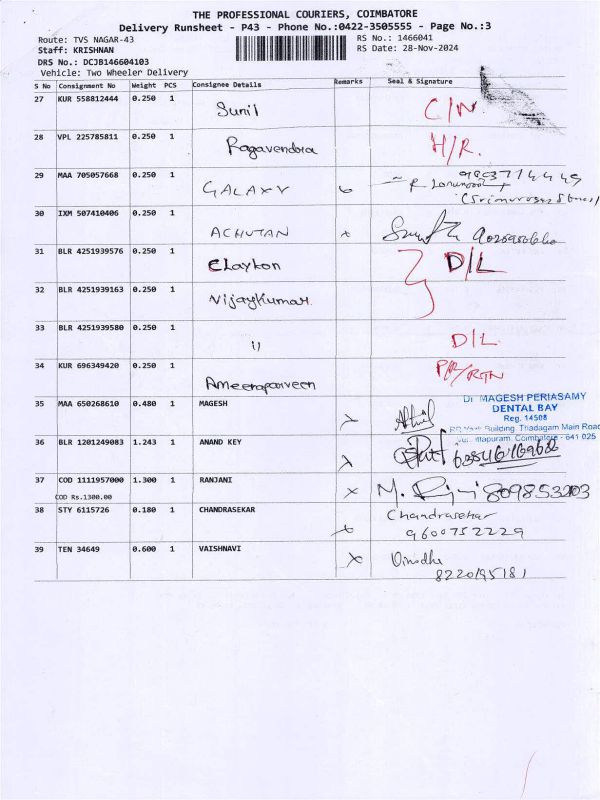 THE PROFESSIONAL COURIERS, COIMBATORE
Delivery Runsheet - P43 - Phone No.:0422-3505555 - Page No.:3
Route: TVS NAGAR-43 RS No.: 1466041
Staff: KRISHNAN RS Date: 28-Nov-2024
DRS No.: DCJB146604103
Vehicle: Two Wheeler Delivery
S No Consignment No Weight PCS Consignee Details Remarks Seal & Signature
27 KUR 558812444 0.250 1 Sunil C/N
28 VPL 225785811 0.250 1 Ragavendora H/R.
29 MAA 705057668 0.250 1 GALAXY
30 IXM 507410406 0.250 1 ACHUTAN x
31 BLR 4251939576 0.250 1 Clayton D/L
32 BLR 4251939163 0.250 1 Vijaykumar
33 BLR 4251939580 0.250 1 11 D/L
34 KUR 696349420 0.250 1 Ameerparveen
35 MAA 650268610 0.480 1 MAGESH
Dr. MAGESH PERIASAMY
DENTAL BAY
Reg. 14508
Building, Thadagam Main Road
Coimbatore - 641 025
36 BLR 1201249083 1.243 1 ANAND KEY
37 COD 1111957000 1.300 1 RANJANI x
COD Rs.1300.00
38 STY 6115726 0.180 1 CHANDRASEKAR x Chandrasekar
9600752229
39 TEN 34649 0.600 1 VAISHNAVI x Vinodha
8220195181